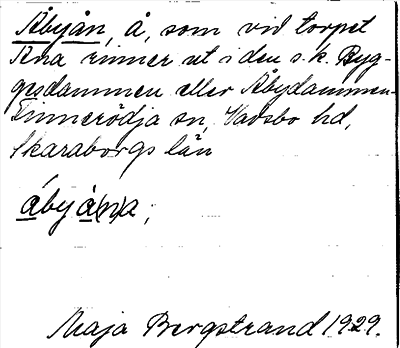 Åbyån, å, som vid torpet
Ana rinner ut i den s.k. Byg-
gesdammen eller Åbydammen.
Finnerödja sn, Vadsbo hd,
Skaraborgs län
åbyå(n)a;
Maja Bergstrand 1929.